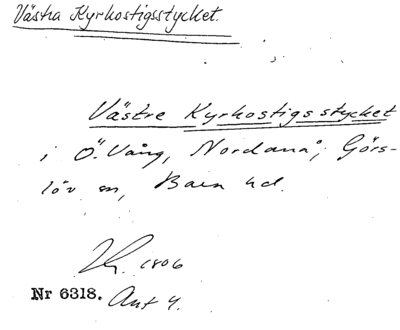 Västra Kyrkostigsstycket.
Västre Kyrkostigsstycket
i Ö. Vång, Nordanå, Görs-
löv sn, Bara hd.
1806
Nr 6318. Akt 4.